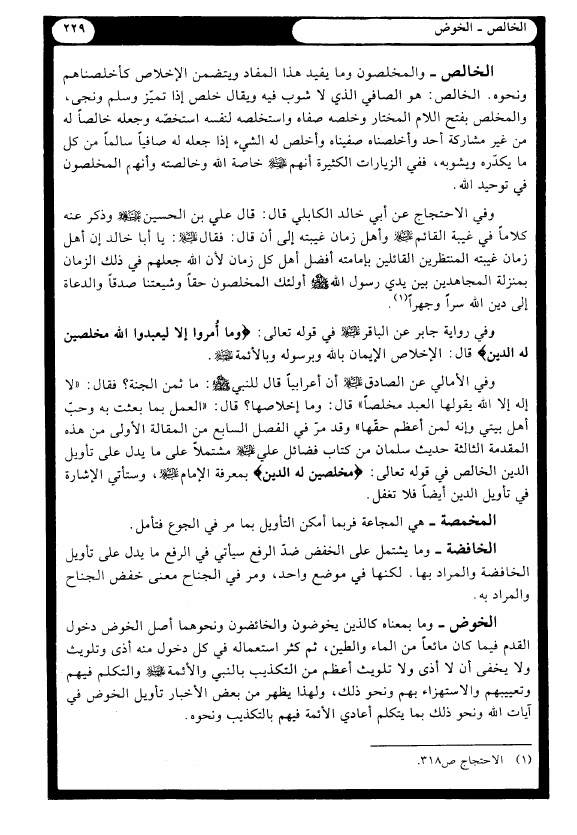 الخالص ـ الخوض
٢٢٩
الخالص ـ والمخلصون وما يفيد هذا المفاد ويتضمن الإخلاص كأخلصناهم
ونحوه. الخالص: هو الصافي الذي لا شوب فيه ويقال خلص إذا تميّز وسلم ونجى،
والمخلص بفتح اللام المختار وخلصه صفاه واستخلصه لنفسه استخصّه وجعله خالصاً له
من غير مشاركة أحد وأخلصناه صفيناه وأخلص له الشيء إذا جعله له صافياً سالماً من كل
ما يكدّره ويشوبه، ففي الزيارات الكثيرة أنهم خاصة الله وخالصته وأنهم المخلصون
في توحيد الله.
وفي الاحتجاج عن أبي خالد الكابلي قال: قال علي بن الحسين وذكر عنه
كلاماً في غيبة القائم وأهل زمان غيبته إلى أن قال: فقال: يا أبا خالد إن أهل
زمان غيبته المنتظرين القائلين بإمامته أفضل أهل كل زمان لأن الله جعلهم في ذلك الزمان
بمنزلة المجاهدين بين يدي رسول الله ﷺ أولئك المخلصون حقاً وشيعتنا صدقاً والدعاة
إلى دين الله سراً وجهراً(١).
وفي رواية جابر عن الباقر في قوله تعالى: ﴿وما أُمروا إلا ليعبدوا الله مخلصين
له الدين﴾ قال: الإخلاص الإيمان بالله وبرسوله وبالأئمة.
وفي الأمالي عن الصادق أن أعرابياً قال للنبي ﷺ: ما ثمن الجنة؟ فقال: «لا
إله إلا الله يقولها العبد مخلصاً» قال: وما إخلاصها؟ قال: «العمل بما بعثت به وحبّ
أهل بيتي وإنه لمن أعظم حقّها» وقد مرّ في الفصل السابع من المقالة الأولى من هذه
المقدمة الثالثة حديث سلمان من كتاب فضائل علي مشتملاً على ما يدل على تأويل
الدين الخالص في قوله تعالى: ﴿مخلصين له الدين﴾ بمعرفة الإمام، وستأتي الإشارة
في تأويل الدين أيضاً فلا تغفل.
المخمصة ـ هي المجاعة فربما أمكن التأويل بما مر في الجوع فتأمل.
الخافضة ـ وما يشتمل على الخفض ضدّ الرفع سيأتي في الرفع ما يدل على تأويل
الخافضة والمراد بها. لكنها في موضع واحد، ومر في الجناح معنى خفض الجناح
والمراد به.
الخوض ـ وما بمعناه كالذين يخوضون والخائضون ونحوهما أصل الخوض دخول
القدم فيما كان مائعاً من الماء والطين، ثم كثر استعماله في كل دخول منه أذى وتلويث
ولا يخفى أن لا أذى ولا تلويث أعظم من التكذيب بالنبي والأئمة والتكلم فيهم
وتعييبهم والاستهزاء بهم ونحو ذلك، ولهذا يظهر من بعض الأخبار تأويل الخوض في
آيات الله ونحو ذلك بما يتكلم أعادي الأئمة فيهم بالتكذيب ونحوه.
(١) الاحتجاج ص٣١٨.